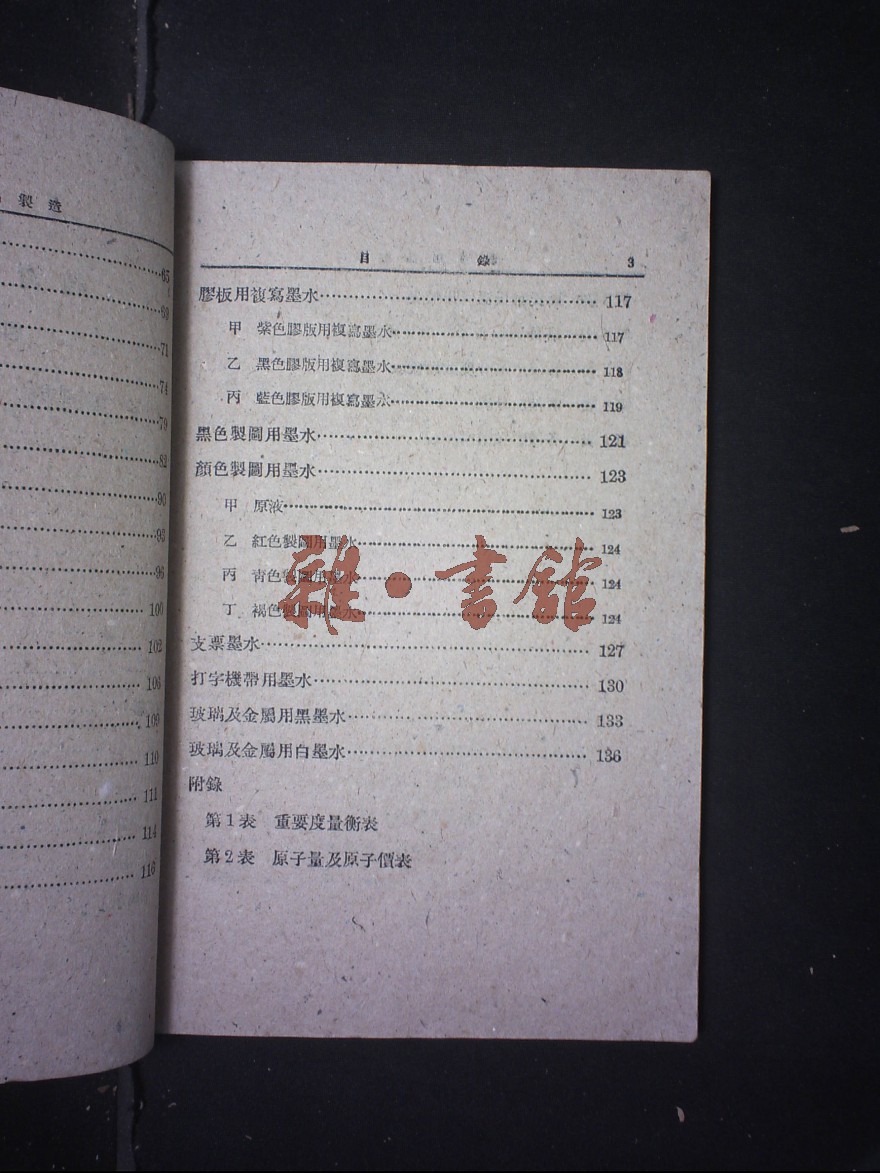 製造
65
69
71
74
79
82
90
93
96
100
102
106
109
110
111
114
116
目錄 3
膠板用複寫墨水 117
甲 紫色膠版用複寫墨水 117
乙 黑色膠版用複寫墨水 118
丙 藍色膠版用複寫墨水 119
黑色製圖用墨水 121
顏色製圖用墨水 123
甲 原液 123
乙 紅色製圖用墨水 124
丙 青色製圖用墨水 124
丁 褐色製圖用墨水 124
支票墨水 127
打字機帶用墨水 130
玻璃及金屬用黑墨水 133
玻璃及金屬用白墨水 136
附錄
第1表 重要度量衡表
第2表 原子量及原子價表
雜·書館